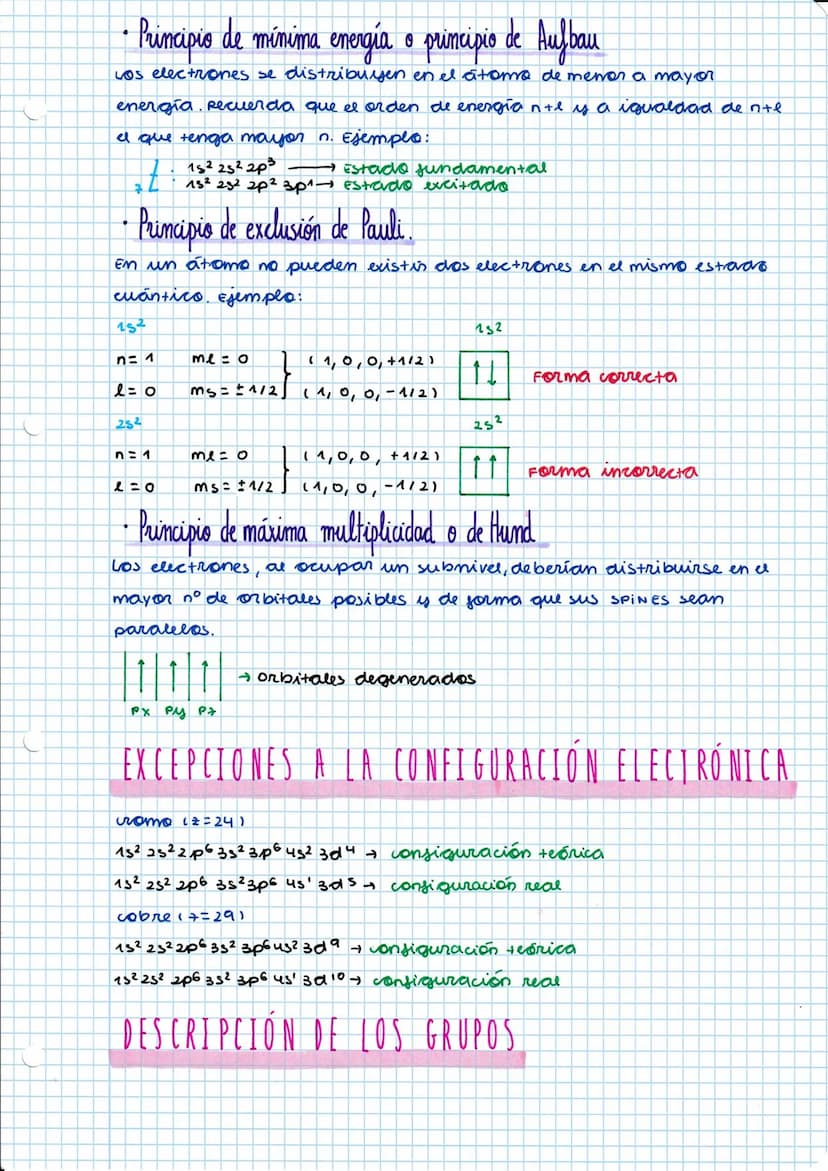 · Principio de mínima energía o principio de Aufbau
Los electrones se distribuyen en el átomo de menor a mayor
energía. Recuerda que el orden de energía n+l y a igualdad de n+l
el que tenga mayor n. Ejemplo:
₇Z : 1s² 2s² 2p³ → Estado fundamental
1s² 2s² 2p² 3p¹ → Estado excitado
· Principio de exclusión de Pauli.
En un átomo no pueden existir dos electrones en el mismo estado
cuántico. Ejemplo:
1s² 1s²
n = 1 ml = 0 } (1, 0, 0, +1/2) ↑↓ Forma correcta
l = 0 ms = ±1/2 (1, 0, 0, -1/2)
2s² 2s²
n = 1 ml = 0 } (1, 0, 0, +1/2) ↑↑ Forma incorrecta
l = 0 ms = ±1/2 (1, 0, 0, -1/2)
· Principio de máxima multiplicidad o de Hund
Los electrones, al ocupar un subnivel, deberían distribuirse en el
mayor nº de orbitales posibles y de forma que sus SPINES sean
paralelos.
|↑|↑|↑| → Orbitales degenerados
Px Py Pz
EXCEPCIONES A LA CONFIGURACIÓN ELECTRÓNICA
cromo (z=24)
1s² 2s² 2p⁶ 3s² 3p⁶ 4s² 3d⁴ → configuración teórica
1s² 2s² 2p⁶ 3s² 3p⁶ 4s¹ 3d⁵ → configuración real
cobre (z=29)
1s² 2s² 2p⁶ 3s² 3p⁶ 4s² 3d⁹ → configuración teórica
1s² 2s² 2p⁶ 3s² 3p⁶ 4s¹ 3d¹⁰ → configuración real
DESCRIPCIÓN DE LOS GRUPOS